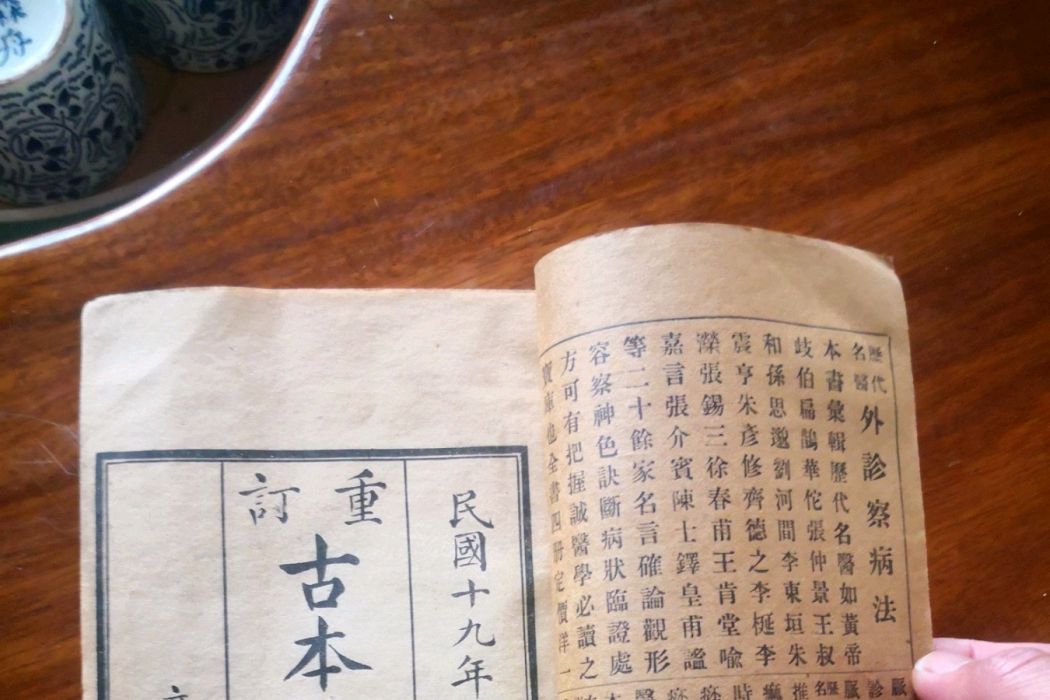 歷代名醫外診察病法
本書彙輯歷代名醫如黃帝
岐伯扁鵲華佗張仲景王叔
和孫思邈劉河間李東垣朱
震亨朱彥修齊德之李梴李
瀠張錫三徐春甫王肯堂喻
嘉言張介賓陳士鐸皇甫謐
等二十餘家名言確論觀形
容察神色訣斷病狀臨證處
方可有把握誠醫學必讀之
寶庫也全書四冊定價洋一
民國十九年
重訂
古本